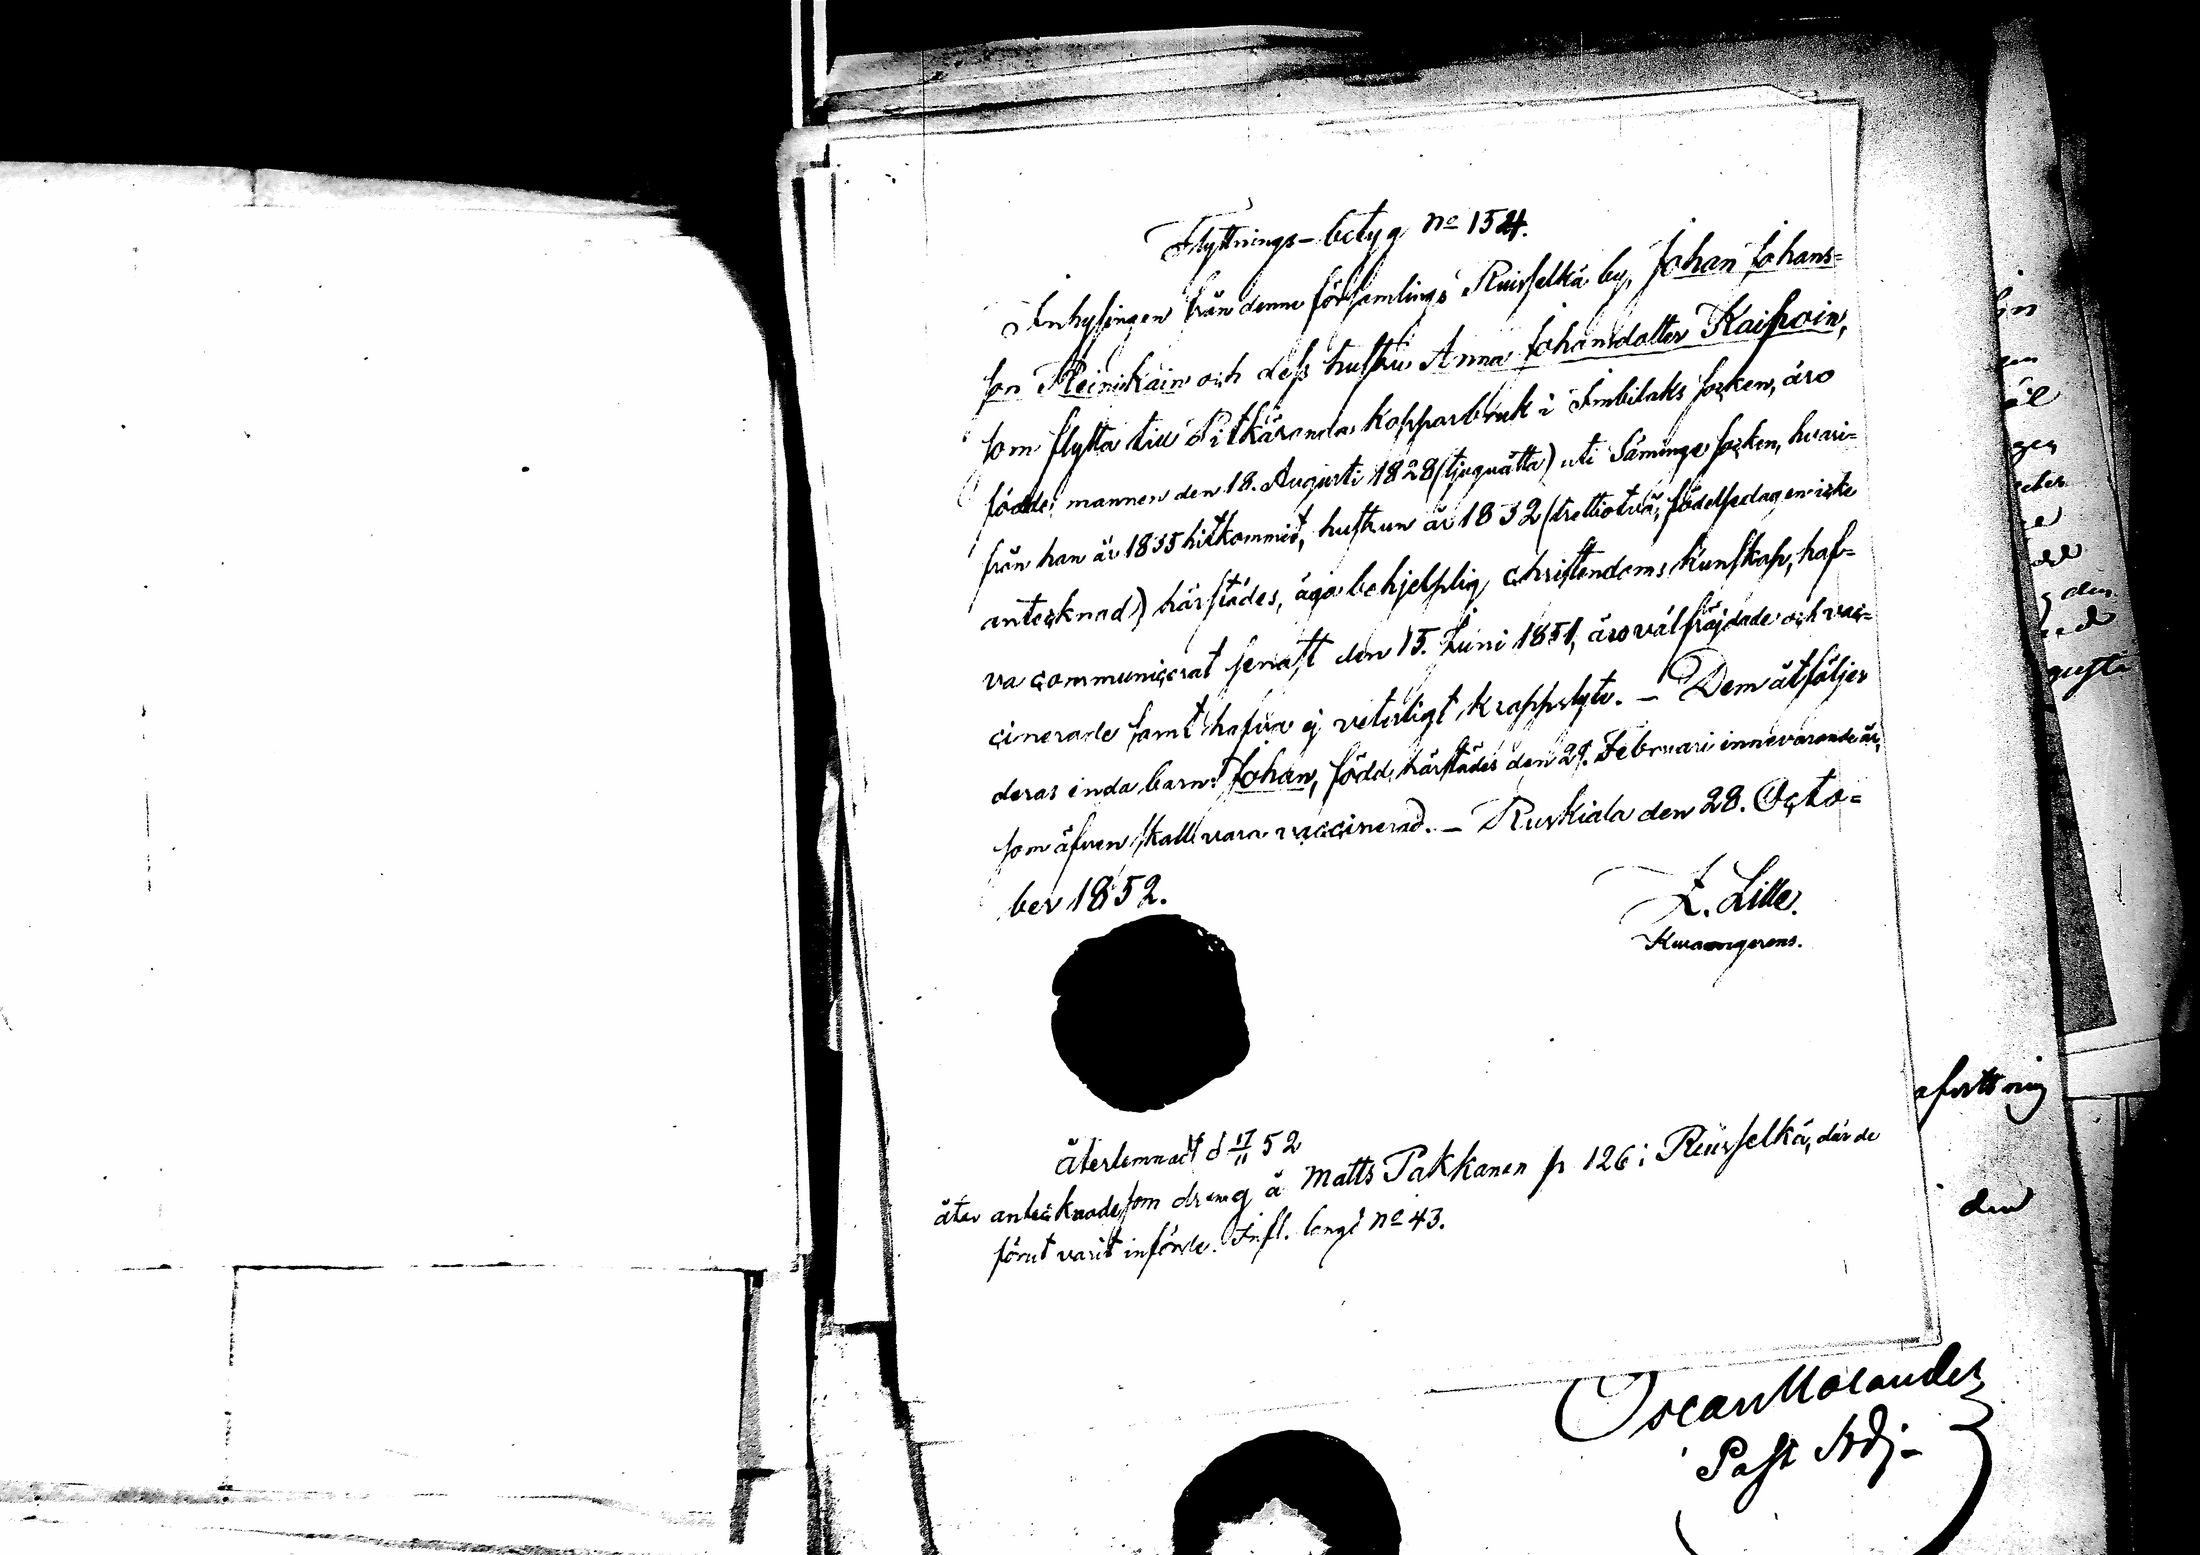 Flyttnings-betyg No 154.
Inhysingen från denne församlings Ruisselkä by, Johan Johans=
son Reinikain och dess hustru Anna Johansdotter Kaipain,
som flytta till Pitkäranda kopparbruk i Imbilaks socken, äro
födde: mannen den 18. Augusti 1828 (tjuguåtta) uti Säminge socken, hvari=
från han år 1835 hitkommit, hustrun år 1832 (trettiotvå, födelsedagen icke
antecknad) härstädes, äga behjelplig christendoms kunskap, haf=
va communicerat senast den 15. Juni 1851, äro välfräjdade och vac=
cinerade samt hafva ej veterligt kroppslyte. – Dem åtföljer
deras enda barn: Johan, född härstädes den 29. Februari innevarande år,
som äfven skall vara vaccinerad. – Ruskiala den 28. Octo=
ber 1852.
Z. Lille.
återlemnadt d 17/11 52
åter antecknade som dreng å Matts Pakkanen p 126 i Ruisselkä, där de
förut varit införde. Infl. längd No 43.
den
Oscar Molander
Past Adj-